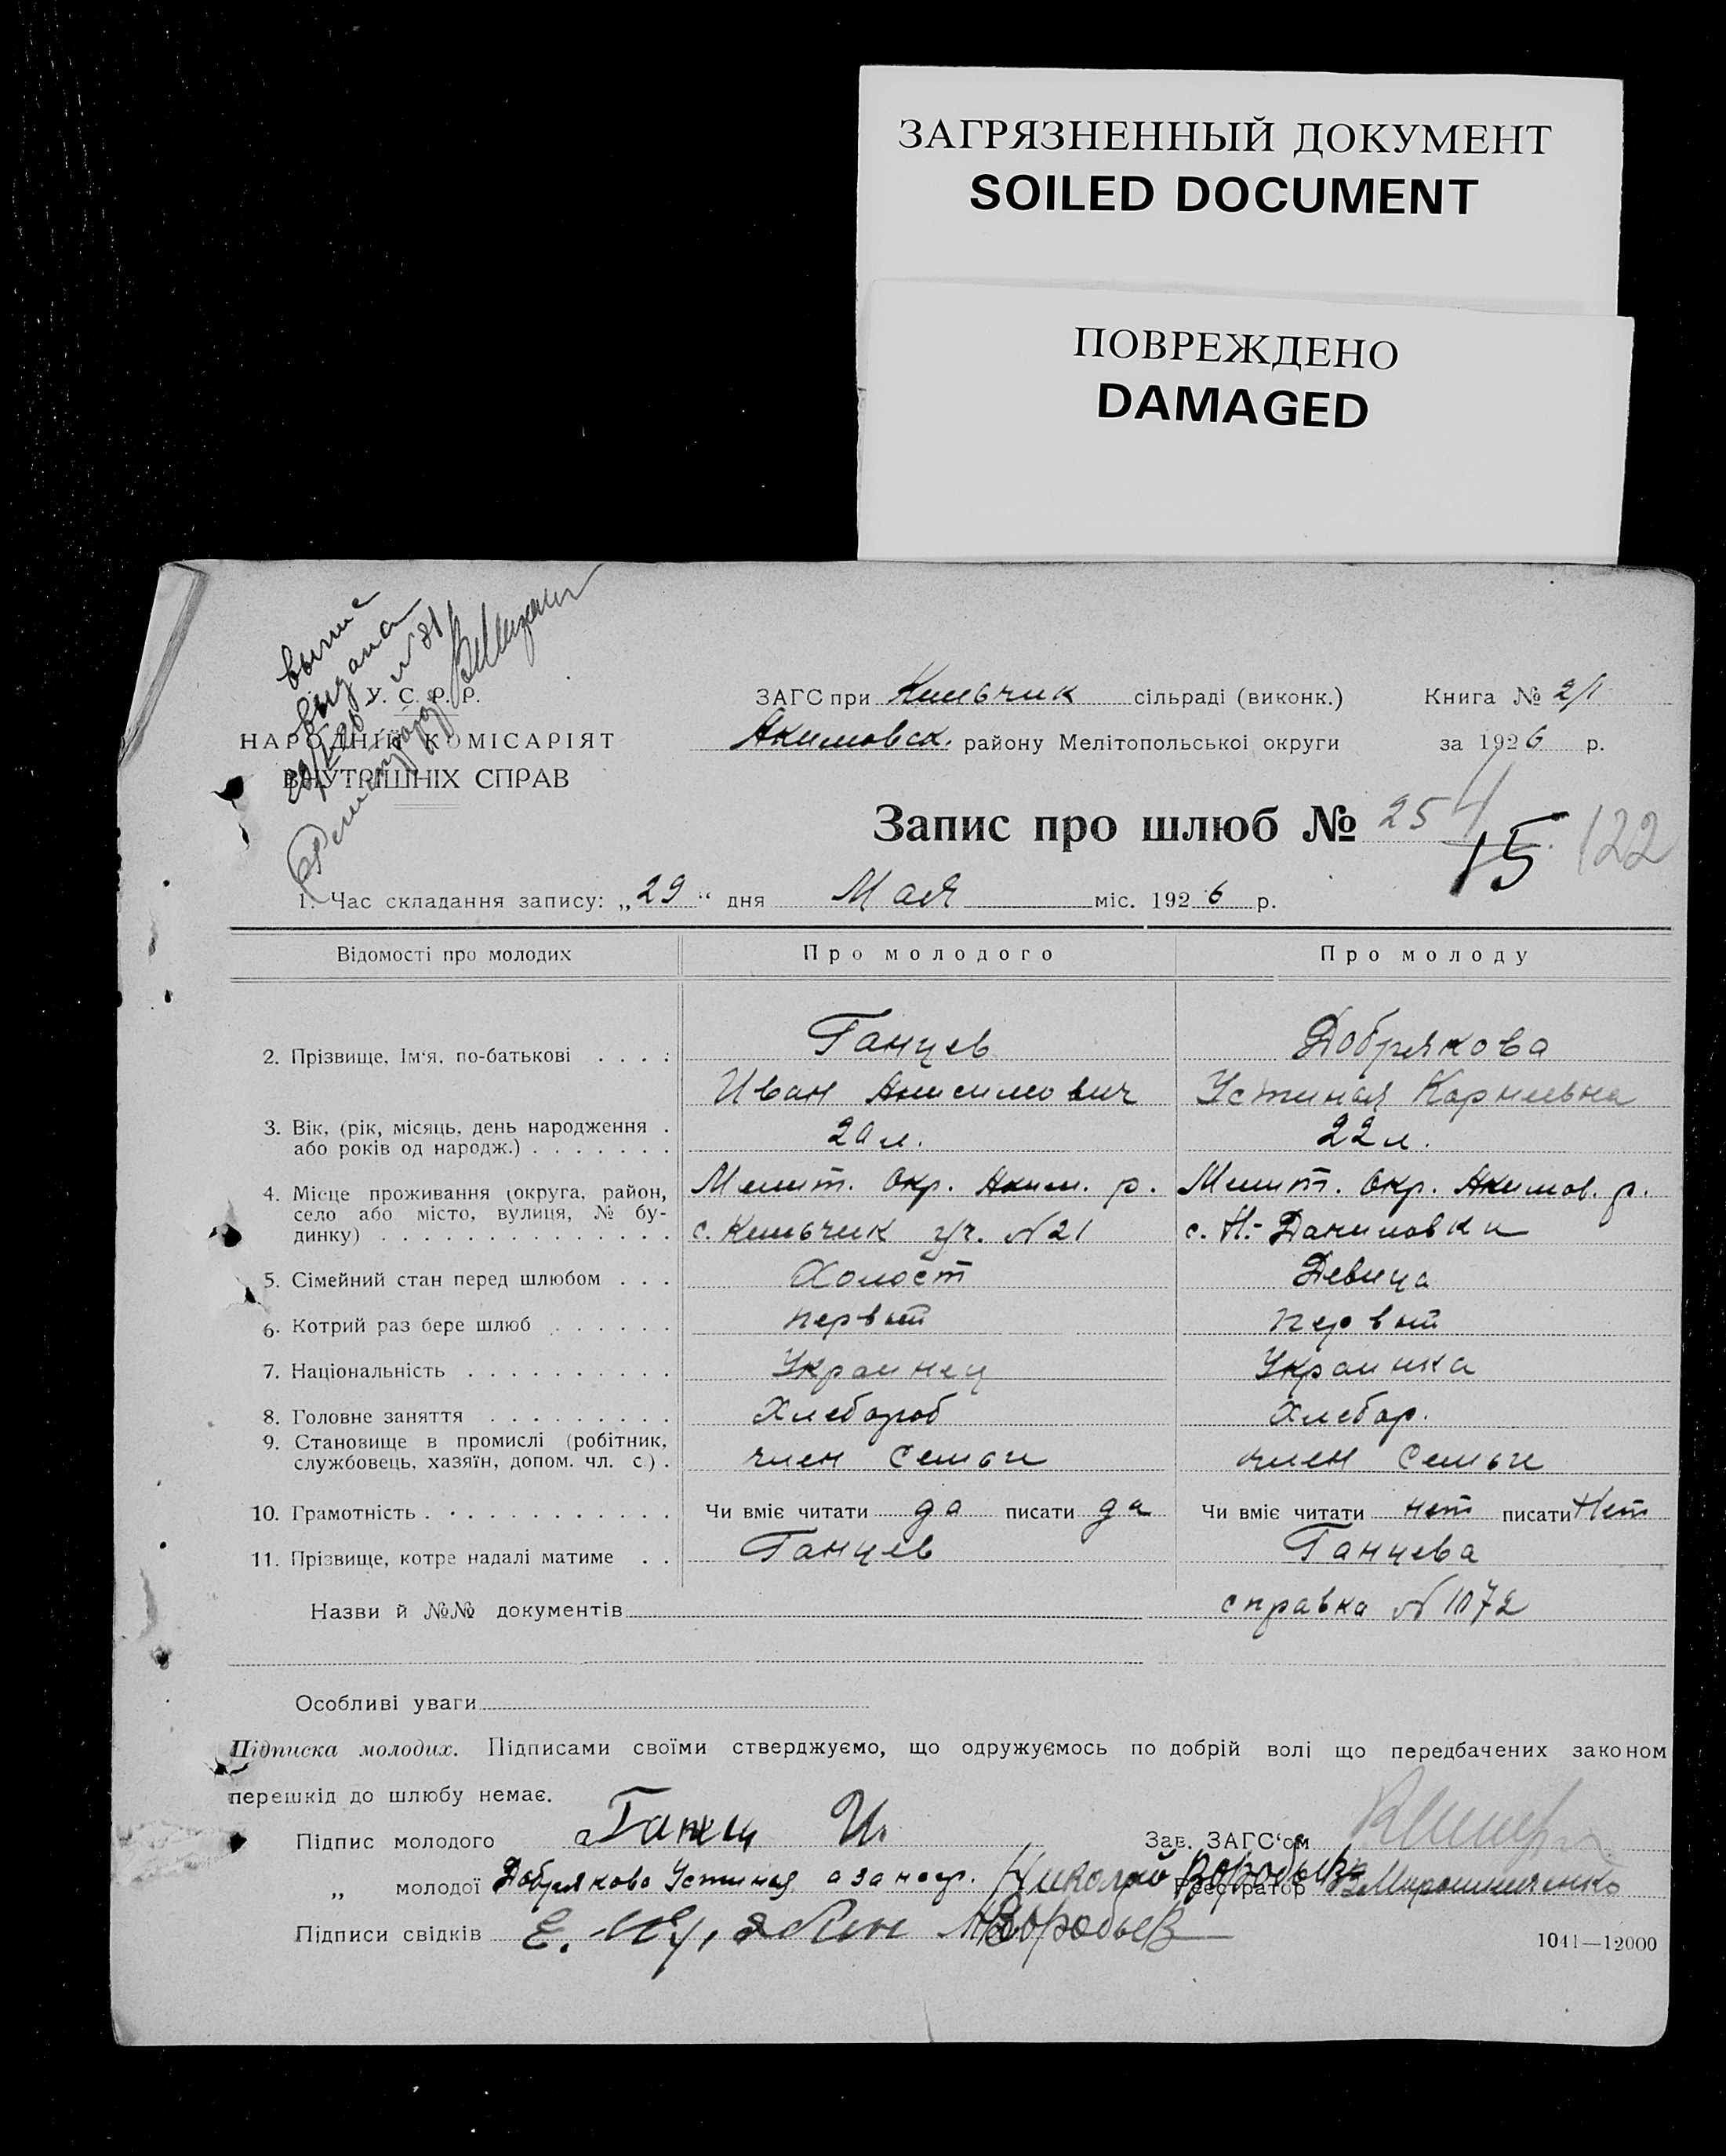 ЗАГРЯЗНЕННЫЙ ДОКУМЕНТ
SOILED DOCUMENT
ПОВРЕЖДЕНО
DAMAGED
выпис
выдана
29/V 26 № 81
У. С. Р. Р.
НАРОДНІЙ КОМІСАРІЯТ
ВНУТРІШНІХ СПРАВ
ЗАГС при Кильчик сільраді (виконк.) Книга № 2/1
Акимовск. району Мелітопольської округи за 1926 р.
Запис про шлюб № 254 15 122
1. Час складання запису: „29“ дня Мая міс. 1926 р.
Відомості про молодих Про молодого Про молоду
2. Прізвище, Ім'я, по-батькові . . . . Ганцев Добрякова
Иван Анисимович Устиная Карнеевна
3. Вік, (рік, місяць, день народження . 20 л. 22 л.
або років од народж.) . . . . . . .
4. Місце проживання (округа, район, Мелит. Окр. Аким. р. Мелит. Окр. Акимов. р.
село або місто, вулиця, № бу-
динку) . . . . . . . . . . . . . с. Кильчик уч. №21 с. Н.-Даниловки
5. Сімейний стан перед шлюбом . . . Холост Девица
6. Котрий раз бере шлюб . . . . . . первый первый
7. Національність . . . . . . . . . . Украинец Украинка
8. Головне заняття . . . . . . . . . Хлебороб Хлебор.
9. Становище в промислі (робітник,
службовець, хазяїн, допом. чл. с.) . член семьи член семьи
10. Грамотність . . . . . . . . . . . . Чи вміє читати да писати да Чи вміє читати нет писати Нет
11. Прізвище, котре надалі матиме . . Ганцев Ганцева
Назви й №№ документів справка № 1072
Особливі уваги
Підписка молодих. Підписами своїми стверджуємо, що одружуємось по добрій волі що передбачених законом
перешкід до шлюбу немає.
Підпис молодого Ганцы И. Зав. ЗАГС'ом
„ молодої Добрякова Устиная а за негр. Николай Воробьев Реєстратор ВМирошниченко
Підписи свідків Е. Воробьев
1041—12000